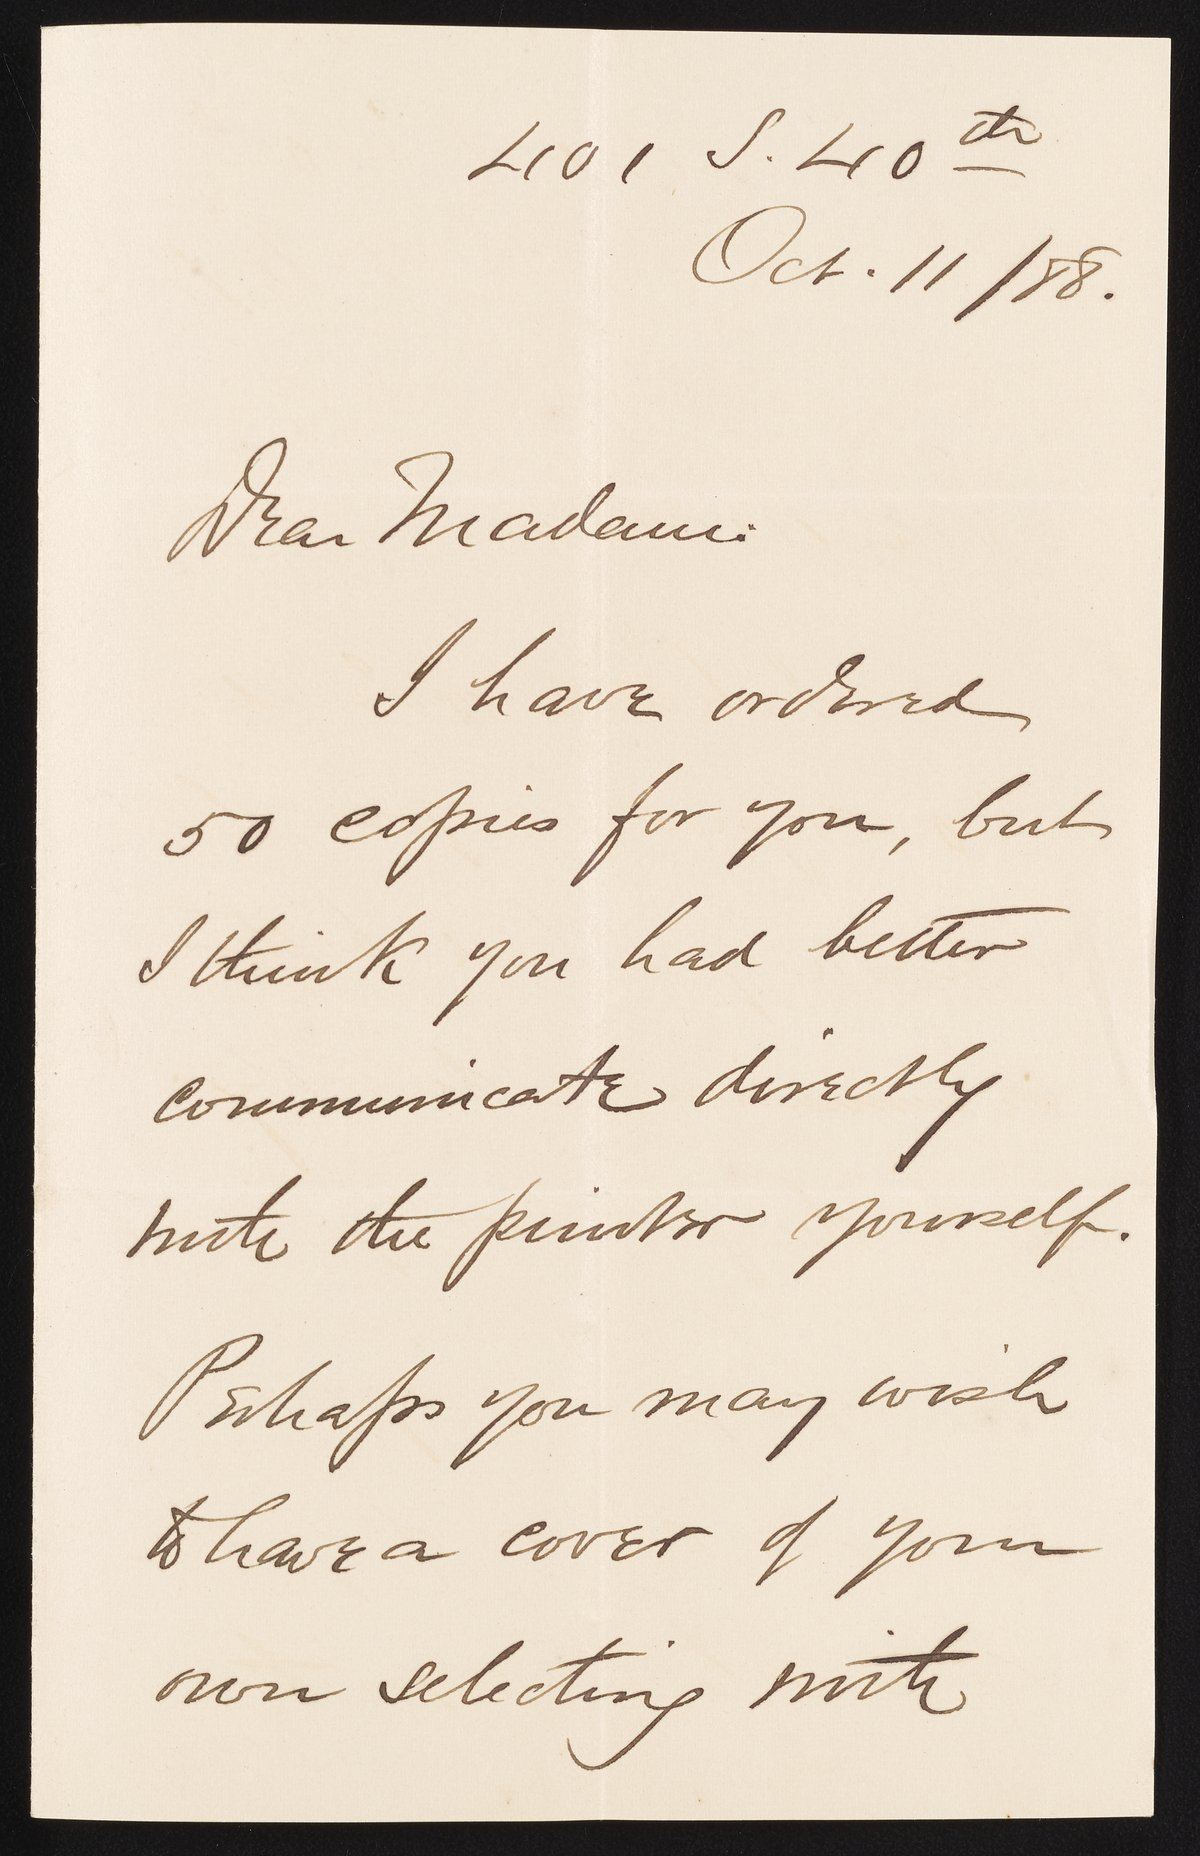 401 S. 40th
Oct. 11/88.
Dear Madam:
I have ordered
50 copies for you, but
I think you had better
communicate directly
with the printer yourself.
Perhaps you may wish
to have a cover of your
own selecting with